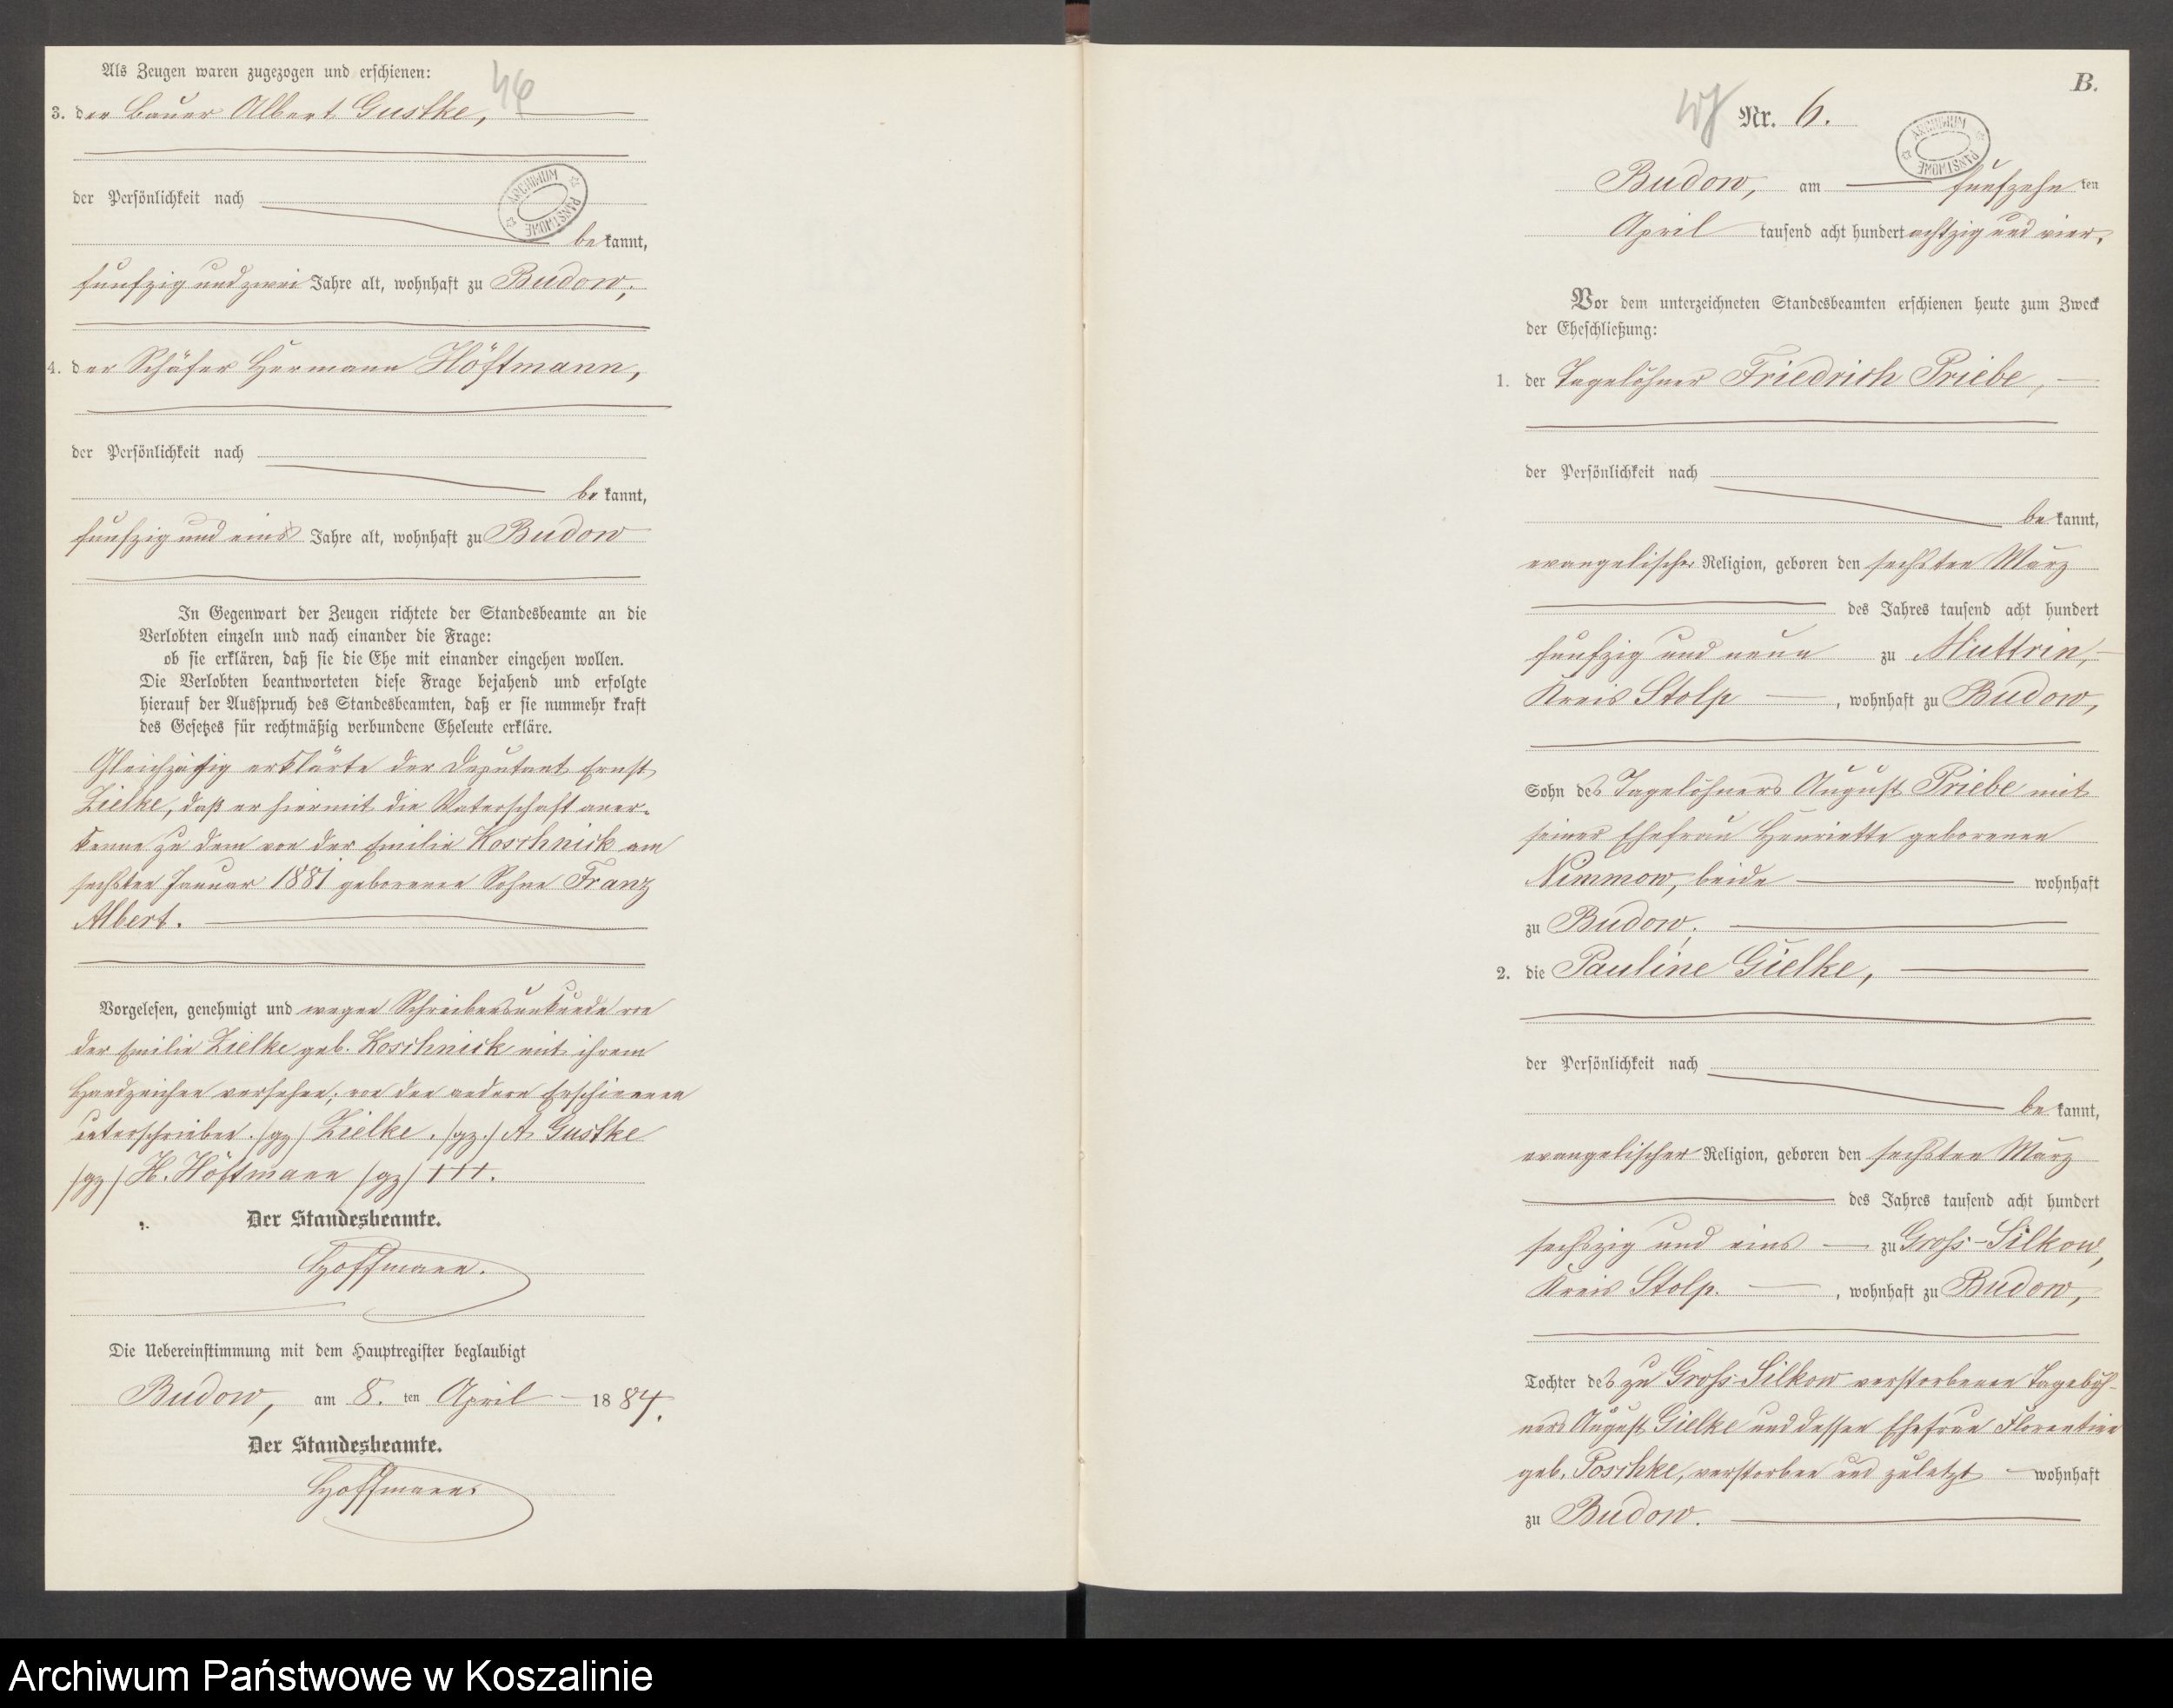 Als Zeugen waren zugezogen und erschienen:
3. der Bauer Albert Gustke,
der Persönlichkeit nach
bekannt,
funfzig und zwei Jahre alt, wohnhaft zu Budow,
4. der Schäfer Hermann Höftmann,
der Persönlichkeit nach
bekannt,
funfzig und eins Jahre alt, wohnhaft zu Budow
In Gegenwart der Zeugen richtete der Standesbeamte an die
Verlobten einzeln und nach einander die Frage:
ob sie erklären, daß sie die Ehe mit einander eingehen wollen.
Die Verlobten beantworteten diese Frage bejahend und erfolgte
hierauf der Ausspruch des Standesbeamten, daß er sie nunmehr kraft
des Gesetzes für rechtmäßig verbundene Eheleute erkläre.
Gleichzeitig erklärte der Deputant Ernst
Zielke, daß er hiermit die Vaterschaft aner-
kenne zu dem von der Emilie Koschnick am
sechsten Januar 1881 geborenen Sohne Franz
Albert.
Vorgelesen, genehmigt und wegen Schreibensunkunde von
der Emilie Zielke geb. Koschnick mit ihrem
Handzeichen versehen; von den andern Erschienenen
unterschrieben. /gz/ Zielke. /gz./ A Gustke
/gz/ H. Höftmann /gz/ +++.
Der Standesbeamte.
Hoffmann.
Die Uebereinstimmung mit dem Hauptregister beglaubigt
Budow, am 8. ten April 1884.
Der Standesbeamte.
Hoffmann.
B.
Nr. 6.
ARCHIWUM PAŃSTWOWE
Budow, am funfzehnten
April tausend acht hundert achtzig und vier.
Vor dem unterzeichneten Standesbeamten erschienen heute zum Zweck
der Eheschließung:
1. der Tagelöhner Friedrich Priebe,
der Persönlichkeit nach
bekannt,
evangelischer Religion, geboren den sechsten März
des Jahres tausend acht hundert
funfzig und neun zu Muttrin,
Kreis Stolp, wohnhaft zu Budow,
Sohn des Tagelöhners August Priebe mit
seiner Ehefrau Henriette geborenen
Nimmow, beide wohnhaft
zu Budow.
2. die Pauline Gielke,
der Persönlichkeit nach
bekannt,
evangelischer Religion, geboren den sechsten März
des Jahres tausend acht hundert
sechszig und eins zu Gross-Silkow,
Kreis Stolp., wohnhaft zu Budow,
Tochter des zu Gross-Silkow verstorbenen Tagelöh-
ners August Gielke und dessen Ehefrau Florentine
geb. Poschke, verstorben und zuletzt wohnhaft
zu Budow.
Archiwum Państwowe w Koszalinie